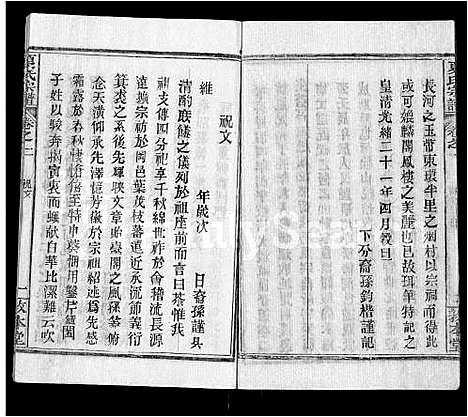 長河之玉帶東環半里之烟村以宗祠而得此
或可媲麟閣鳳樓之美麗也已故珥筆特記之
皇清光緒二十一年四月穀旦
下分裔孫鈞楷謹記
敦本堂
氏宗譜
卷之二
祝文
祝文
維
年歲次
日裔孫謹具
清酌殷饈之儀列於祖座前而言曰恭惟我
祖支傳四分祀享千秋綿世祚於會稽流長源
遠擴宗祊於岡邑葉茂枝蕃追近永流節義衍
箕裘之系後先輝映文章
臺閣之風孫等
念天潢衍派久承澤憶芳徽於宗祖紹述爲先感
霜露於春秋悽愴
至特申
藻捐用鑿芹
子姓以駿奔揭寅衷而
獻白華比潔難云吹
敦本堂